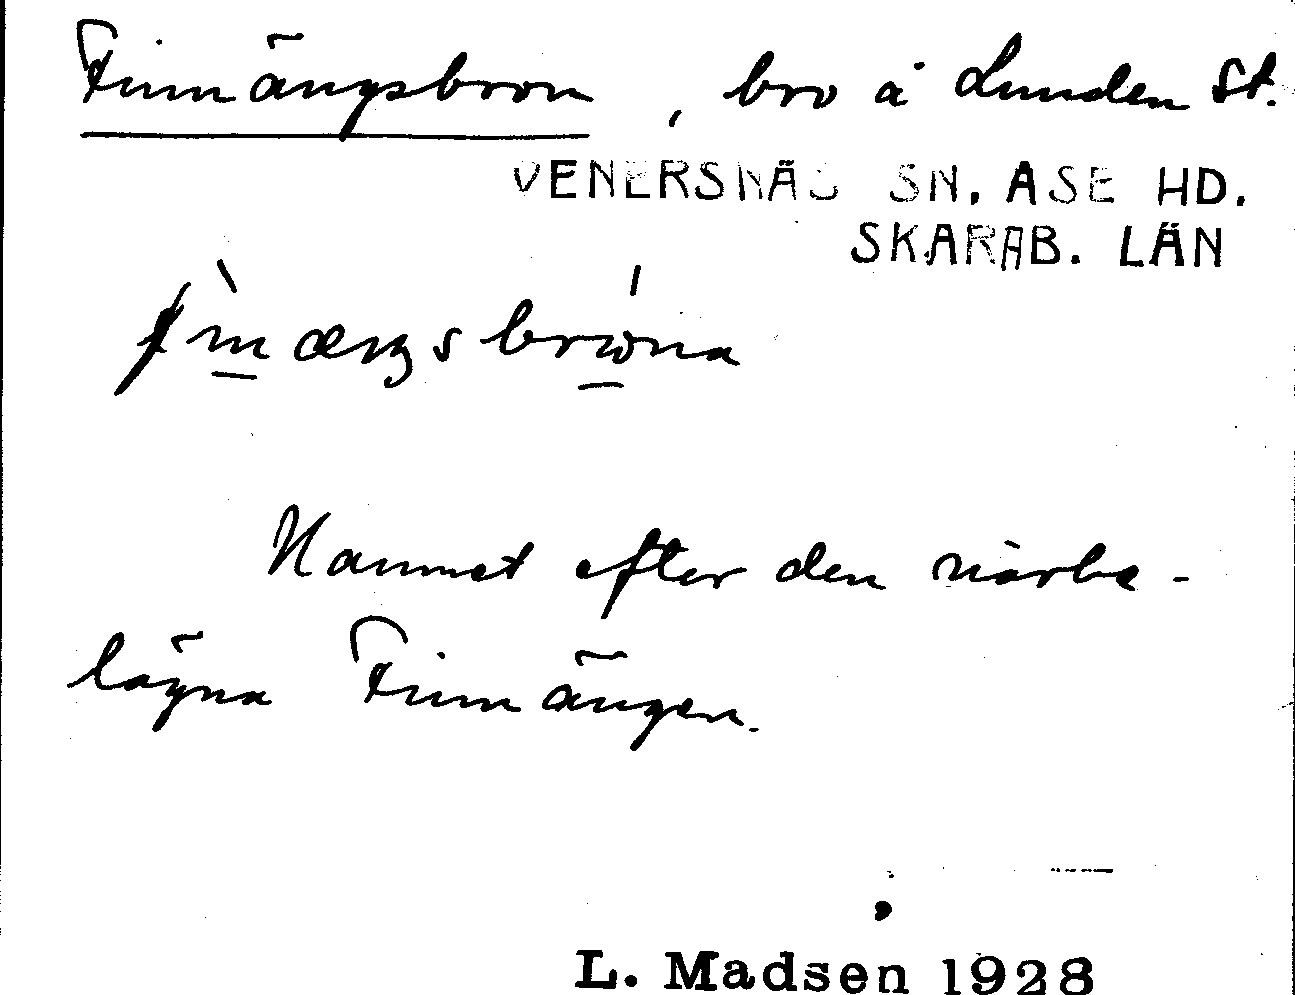 Finnängsbron, bro å Lunden St.
VENERSNÄS SN. ASE HD.
SKARAB. LÄN
Namnet efter den närbe-
lägna Finnängen.
L. Madsen 1928